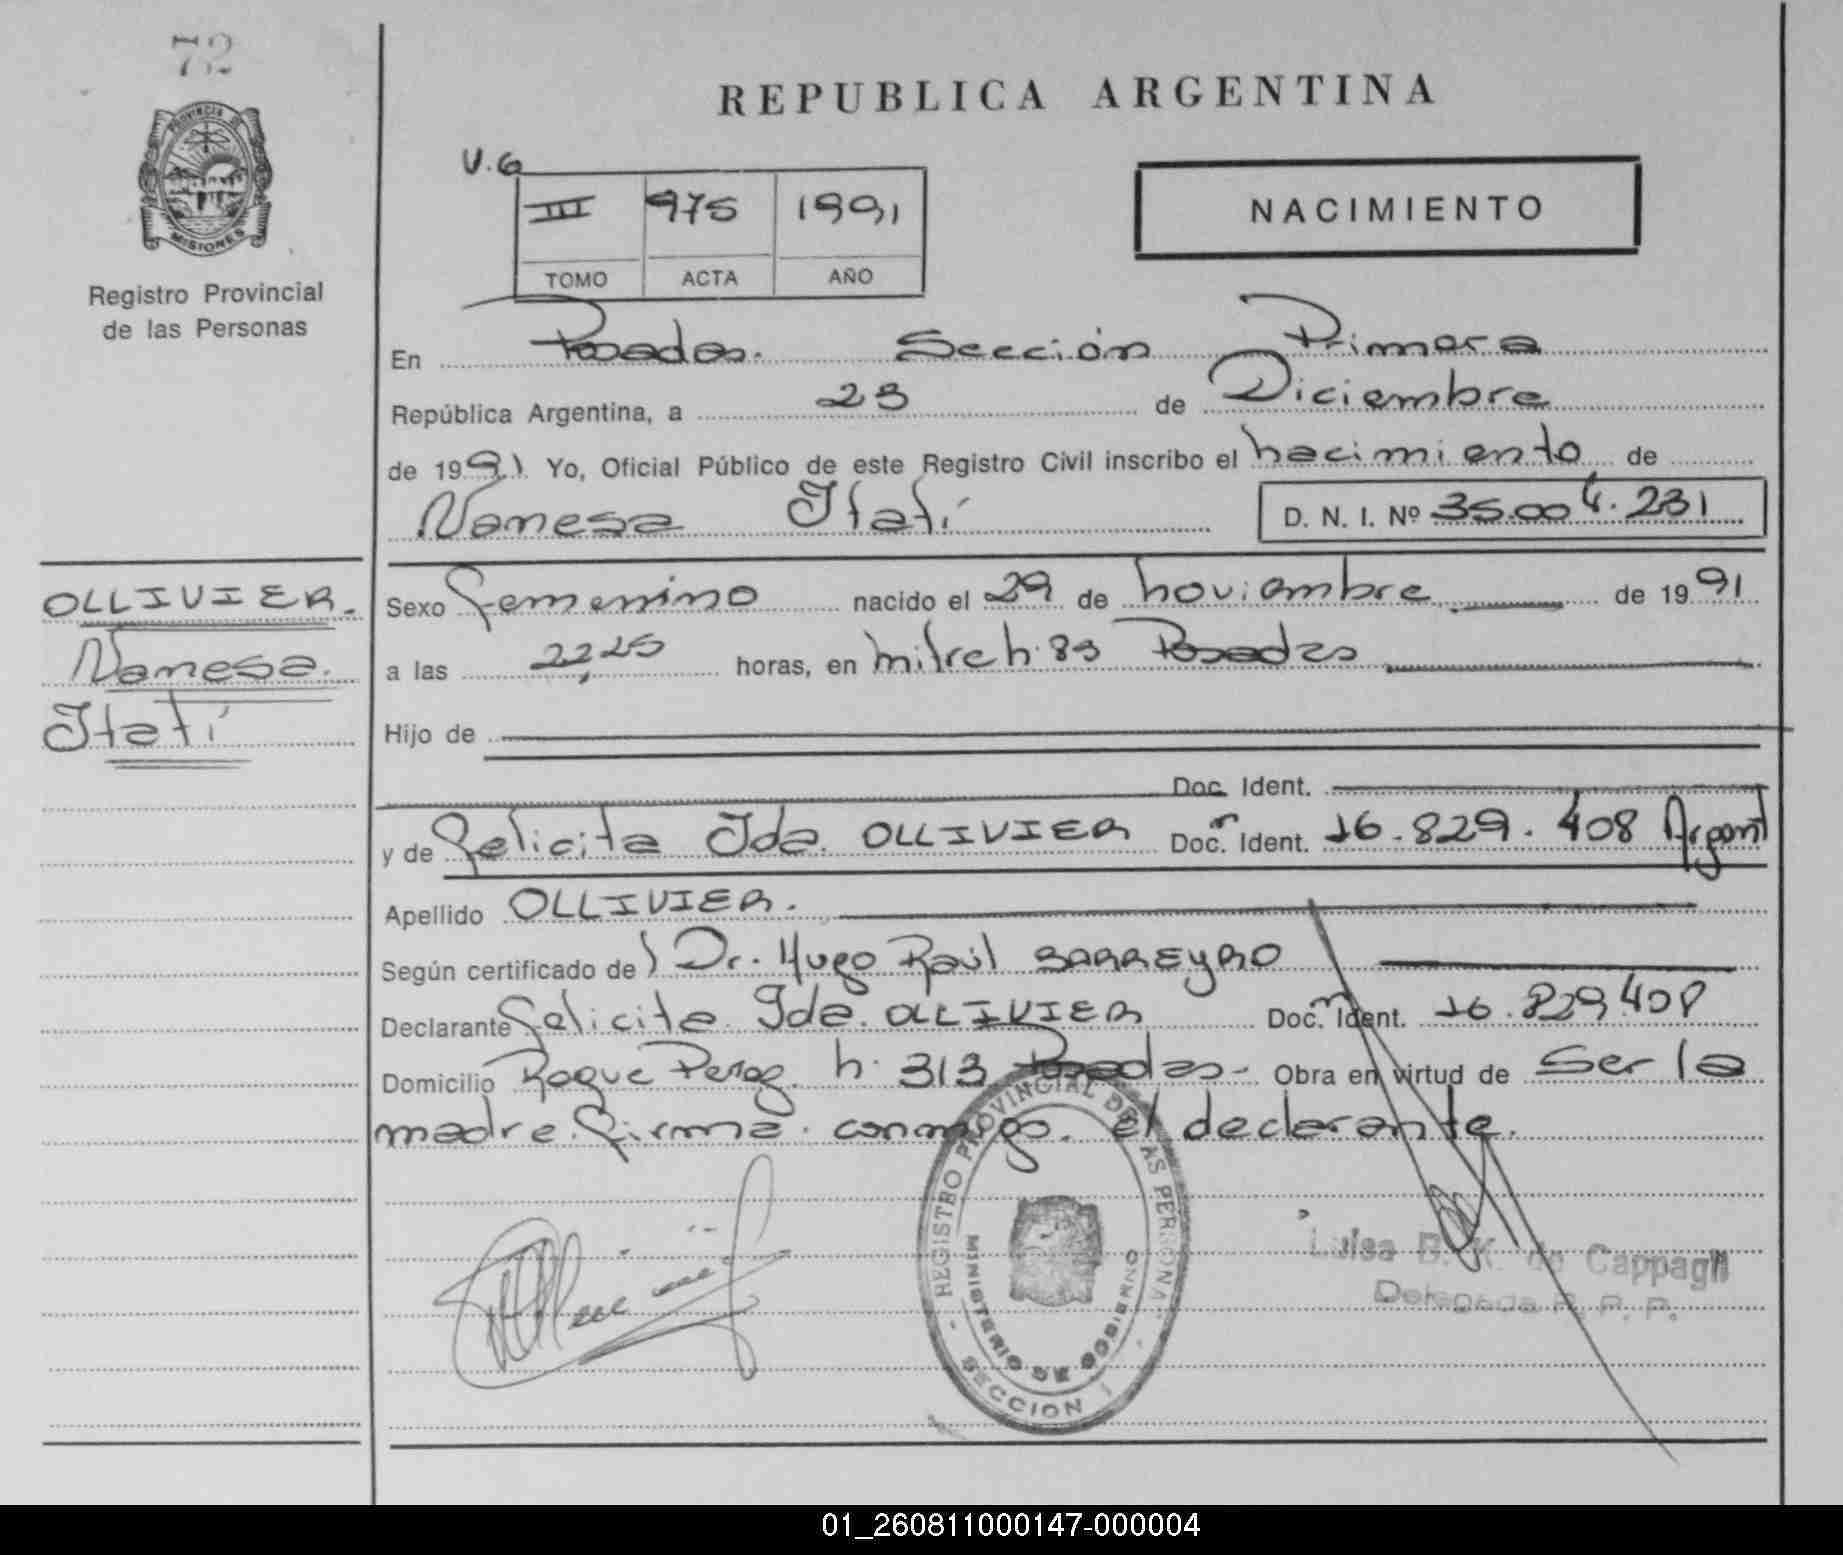 72
REPUBLICA ARGENTINA
PROVINCIA DE
MISIONES
Registro Provincial
de las Personas
V.6
III 975 1991
TOMO ACTA AÑO
NACIMIENTO
En Posadas. Sección Primera
República Argentina, a 23 de Diciembre
de 1991 Yo, Oficial Público de este Registro Civil inscribo el nacimiento de
Vanesa Itatí D. N. I. Nº 35.004.231
OLLIVIER.
Vanesa.
Itatí
Sexo femenino nacido el 29 de noviembre de 1991
a las 22,25 horas, en mitre n. 83 Posadas
Hijo de
Doc. Ident.
y de Felicita Ida. OLLIVIER Doc. Ident. 16.829.408 Argent
Apellido OLLIVIER.
Según certificado del Dr. Hugo Raúl BARREYRO
Declarante Felicita Ida. OLLIVIER Doc. Ident. 16.829.408
Domicilio Roque Perez. n. 313 Posadas- Obra en virtud de Ser la
madre. firma conmigo. el declarante.
REGISTRO PROVINCIAL DE LAS PERSONAS
MINISTERIO DE GOBIERNO
SECCION 1
Luisa B. K. de Cappagli
Delegada R. P. P.
01_260811000147-000004